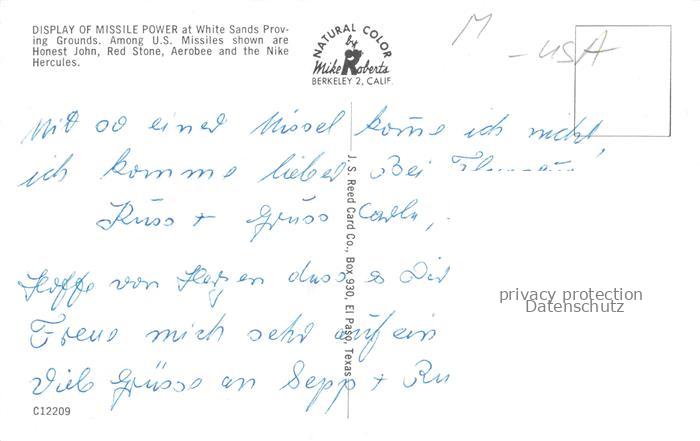 DISPLAY OF MISSILE POWER at White Sands Prov-
ing Grounds. Among U.S. Missiles shown are
Honest John, Red Stone, Aerobee and the Nike
Hercules.
NATURAL COLOR
by
Mike Roberts
BERKELEY 2, CALIF.
M - USA
Mit so einer Missel komme ich nicht,
ich komme lieber Bei
Küss + Grüss Carla,
Hoffe von Herzen dass es Dir
Freue mich sehr auf ein
Viele Grüsse an Sepp +
J. S. Reed Card Co., Box 930, El Paso, Texas
privacy protection
Datenschutz
C12209